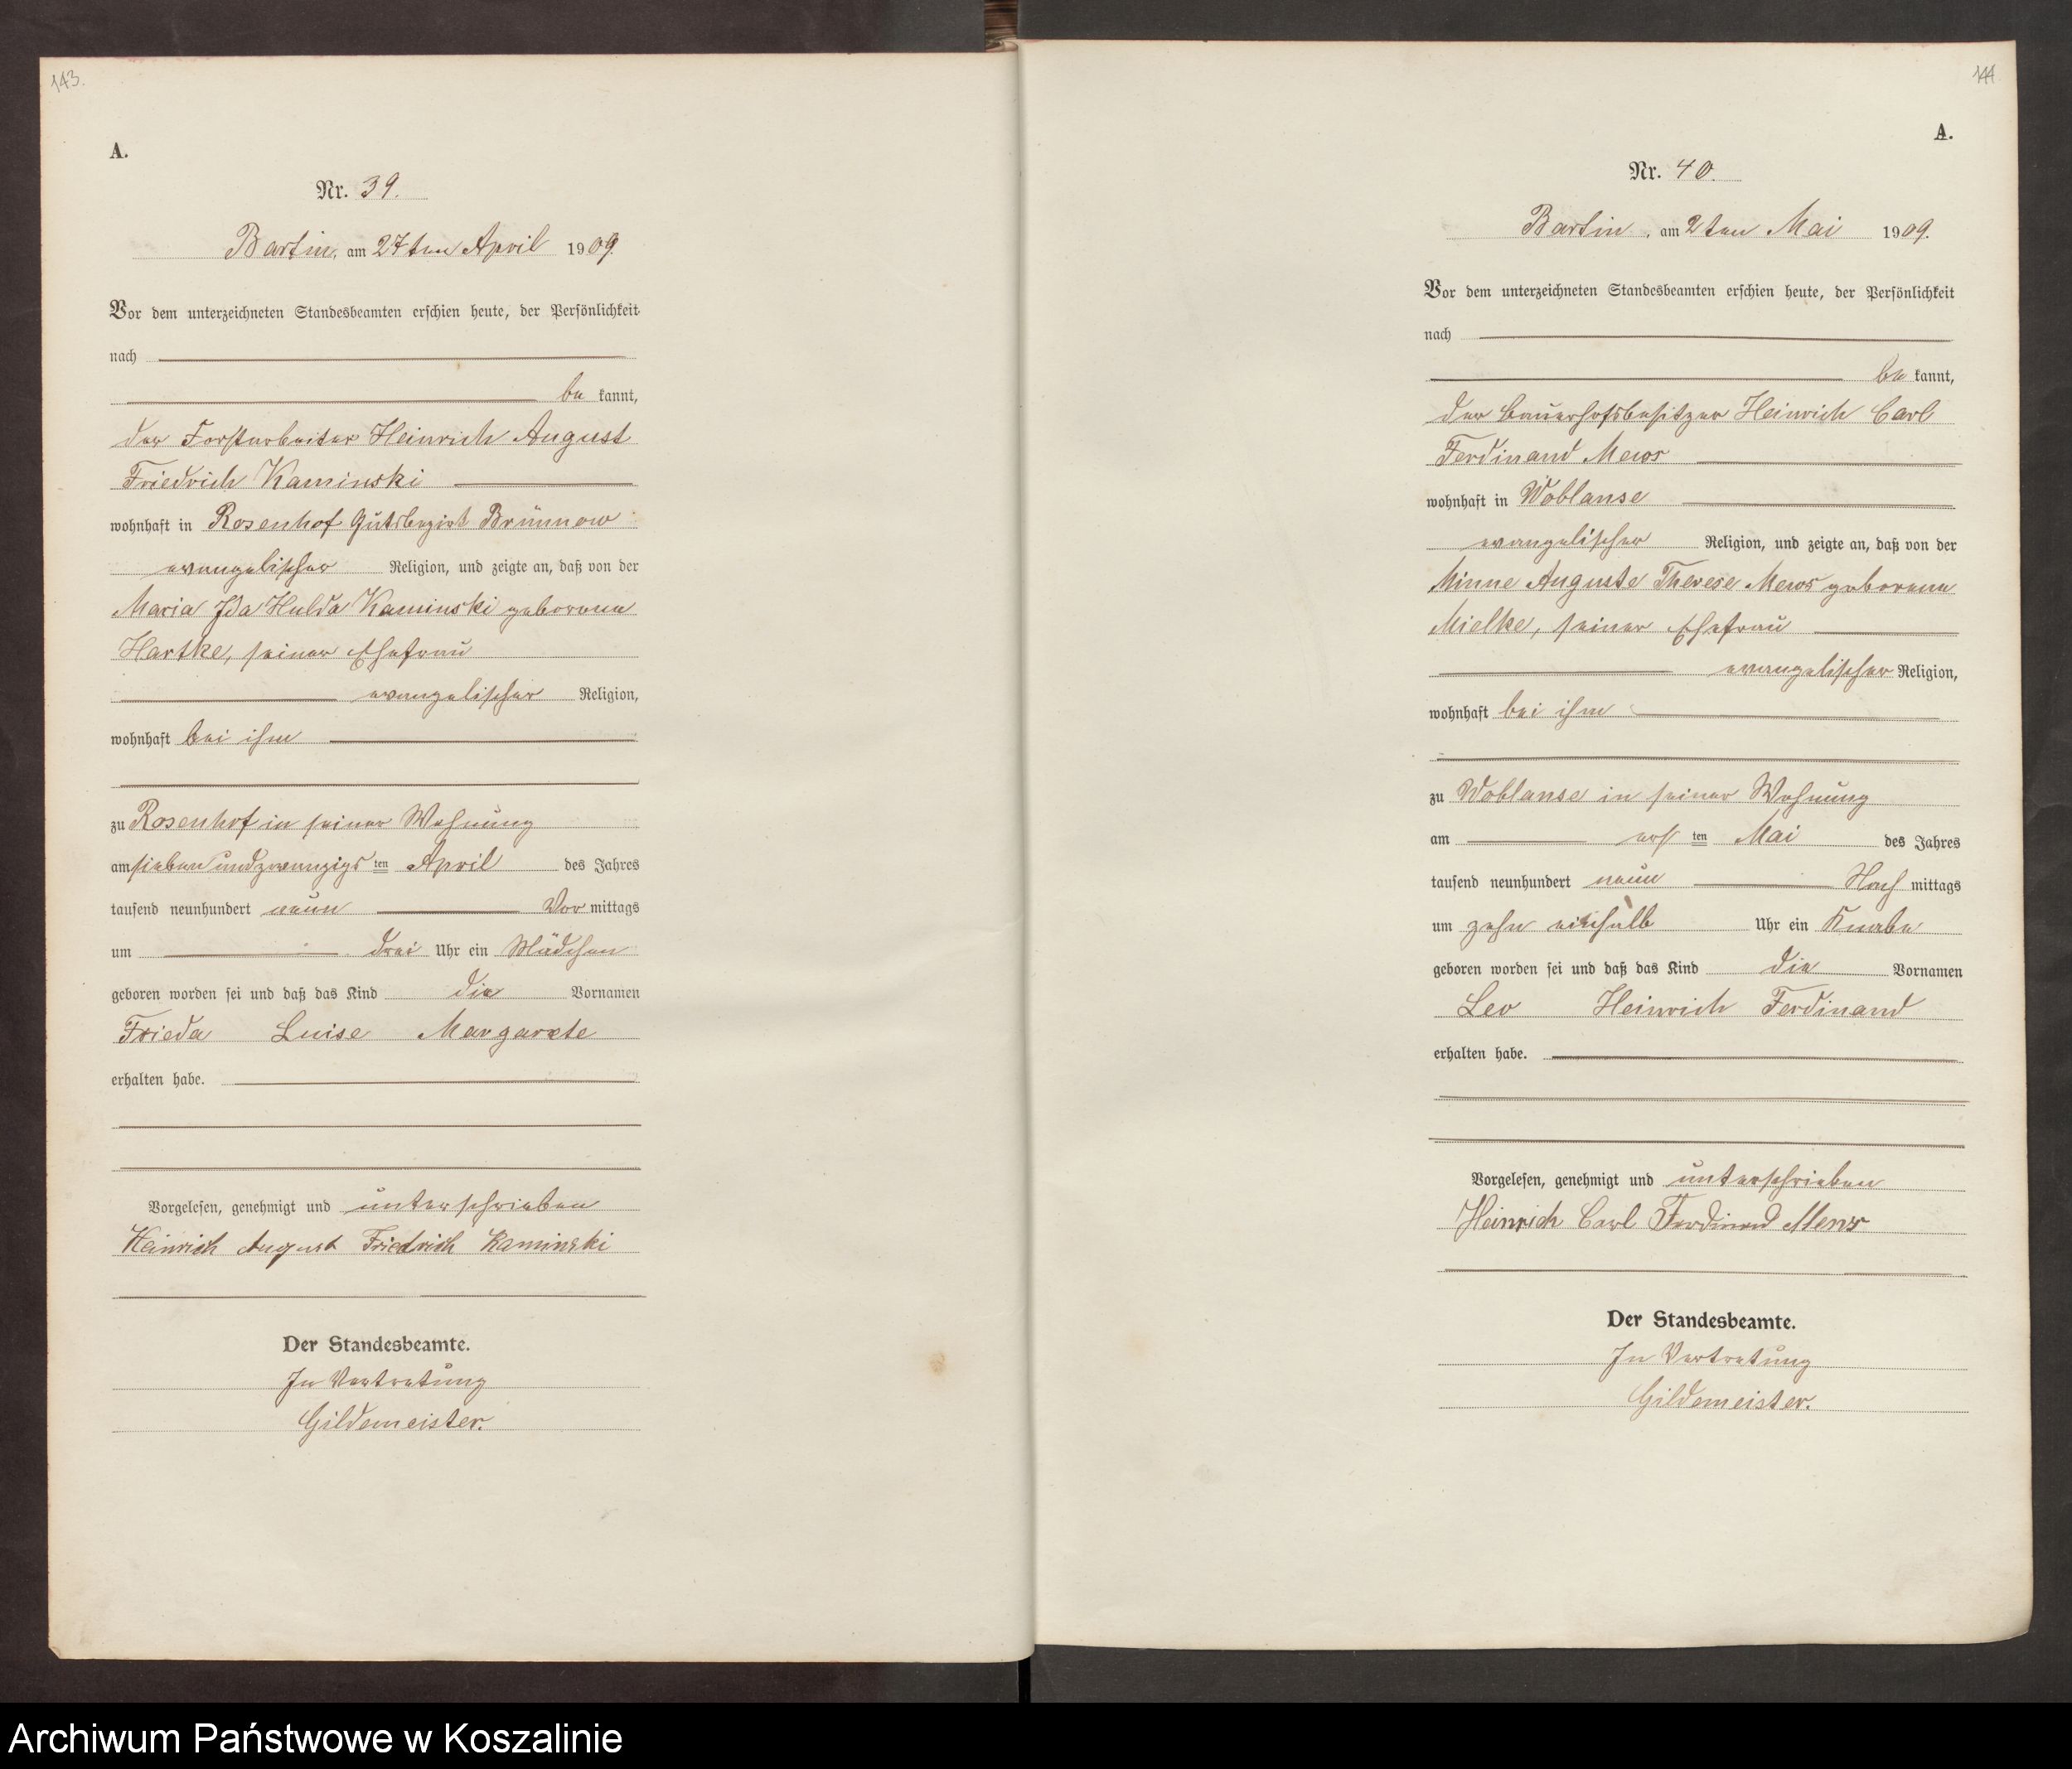 143.
A.
Nr. 39.
Bartin, am 27ten April 1909.
Vor dem unterzeichneten Standesbeamten erschien heute, der Persönlichkeit
nach
be kannt,
der Forstarbeiter Heinrich August
Friedrich Kaminski
wohnhaft in Rosenhof Gutsbezirk Brünnow
evangelischer Religion, und zeigte an, daß von der
Maria Ida Hulda Kaminski geborene
Hartke, seiner Ehefrau
evangelischer Religion,
wohnhaft bei ihm
zu Rosenhof in seiner Wohnung
am siebenundzwanzigsten April des Jahres
tausend neunhundert neun Vor mittags
um drei Uhr ein Mädchen
geboren worden sei und daß das Kind die Vornamen
Frieda Luise Margarete
erhalten habe.
Vorgelesen, genehmigt und unterschrieben
Heinrich August Friedrich Kaminski
Der Standesbeamte.
In Vertretung
Gildemeister.
144
A.
Nr. 40.
Bartin, am 2ten Mai 1909.
Vor dem unterzeichneten Standesbeamten erschien heute, der Persönlichkeit
nach
be kannt,
der Bauerhofsbesitzer Heinrich Carl
Ferdinand Mews
wohnhaft in Woblanse
evangelischer Religion, und zeigte an, daß von der
Minne Auguste Therese Mews geborene
Mielke, seiner Ehefrau
evangelischer Religion,
wohnhaft bei ihm
zu Woblanse in seiner Wohnung
am ersten Mai des Jahres
tausend neunhundert neun Nach mittags
um zehn einhalb Uhr ein Knabe
geboren worden sei und daß das Kind die Vornamen
Leo Heinrich Ferdinand
erhalten habe.
Vorgelesen, genehmigt und unterschrieben
Heinrich Carl Ferdinand Mews
Der Standesbeamte.
In Vertretung
Gildemeister.
Archiwum Państwowe w Koszalinie